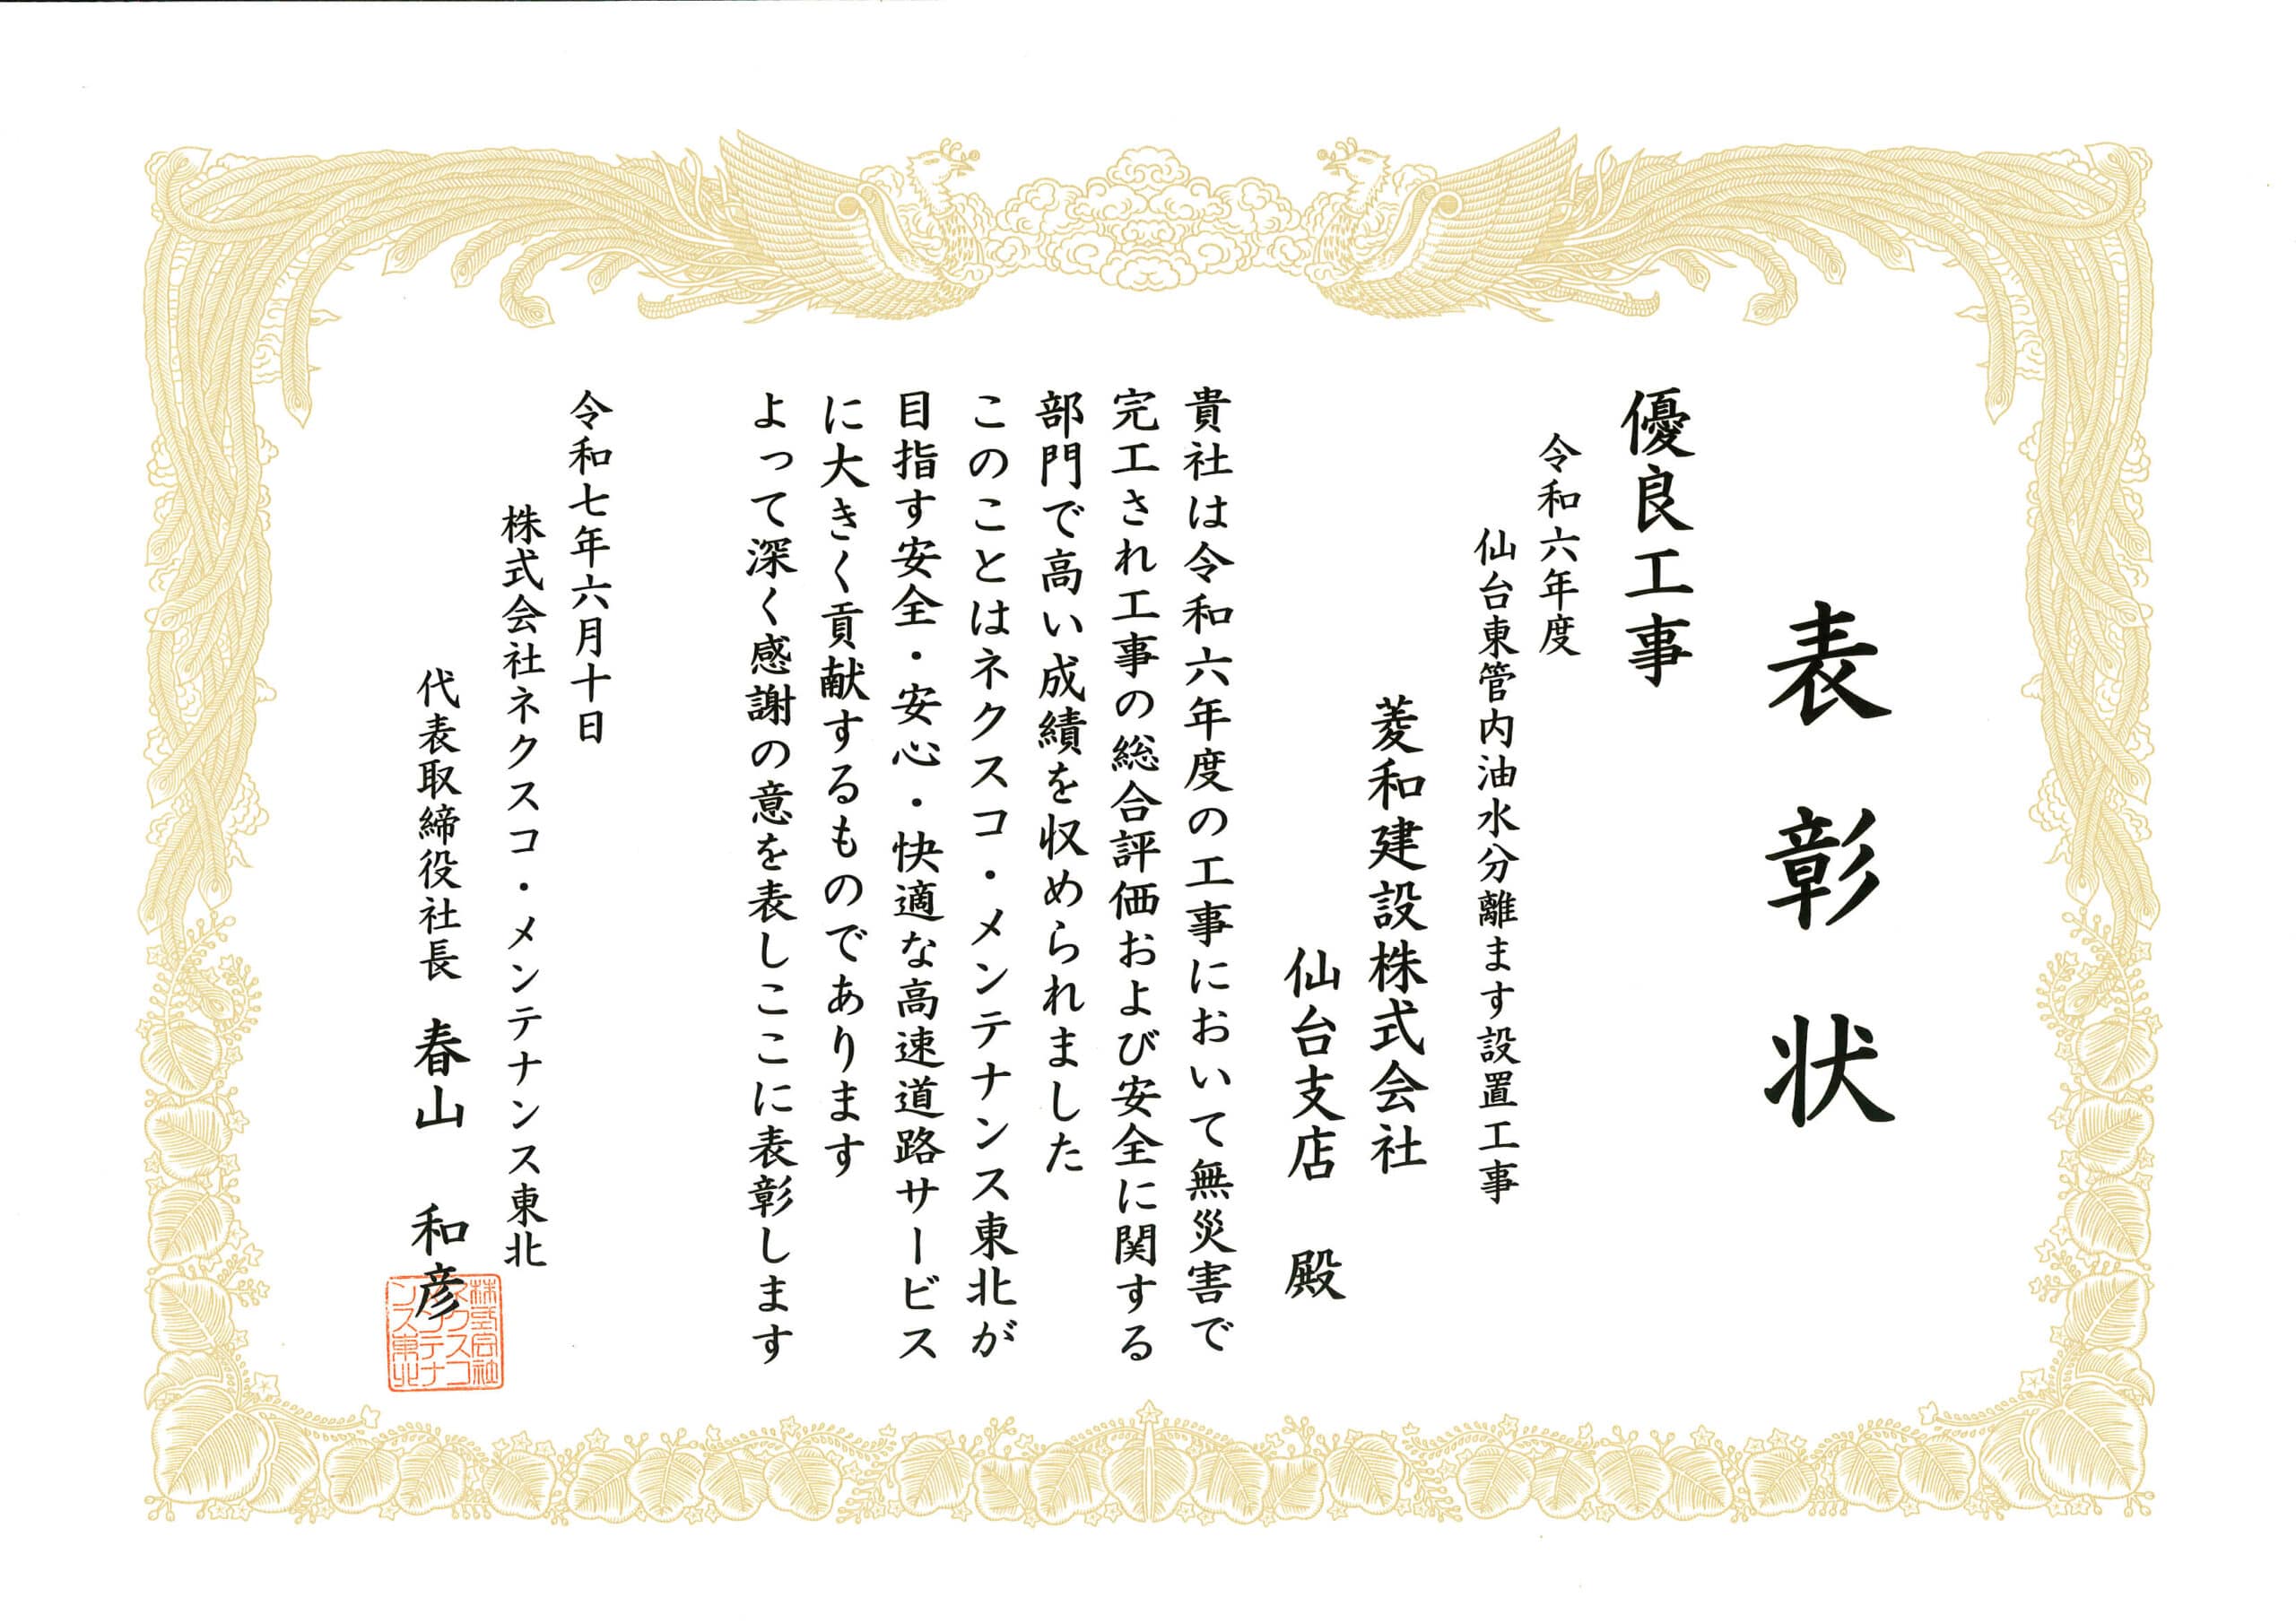 表彰状
優良工事
令和六年度
仙台東管内油水分離ます設置工事
菱和建設株式会社
仙台支店 殿
貴社は令和六年度の工事において無災害で
完工され工事の総合評価および安全に関する
部門で高い成績を収められました
このことはネクスコ・メンテナンス東北が
目指す安全・安心・快適な高速道路サービス
に大きく貢献するものであります
よって深く感謝の意を表しここに表彰します
令和七年六月十日
株式会社ネクスコ・メンテナンス東北
代表取締役社長 春山 和彦
株式会社
ネクスコ
メンテナ
ンス東北